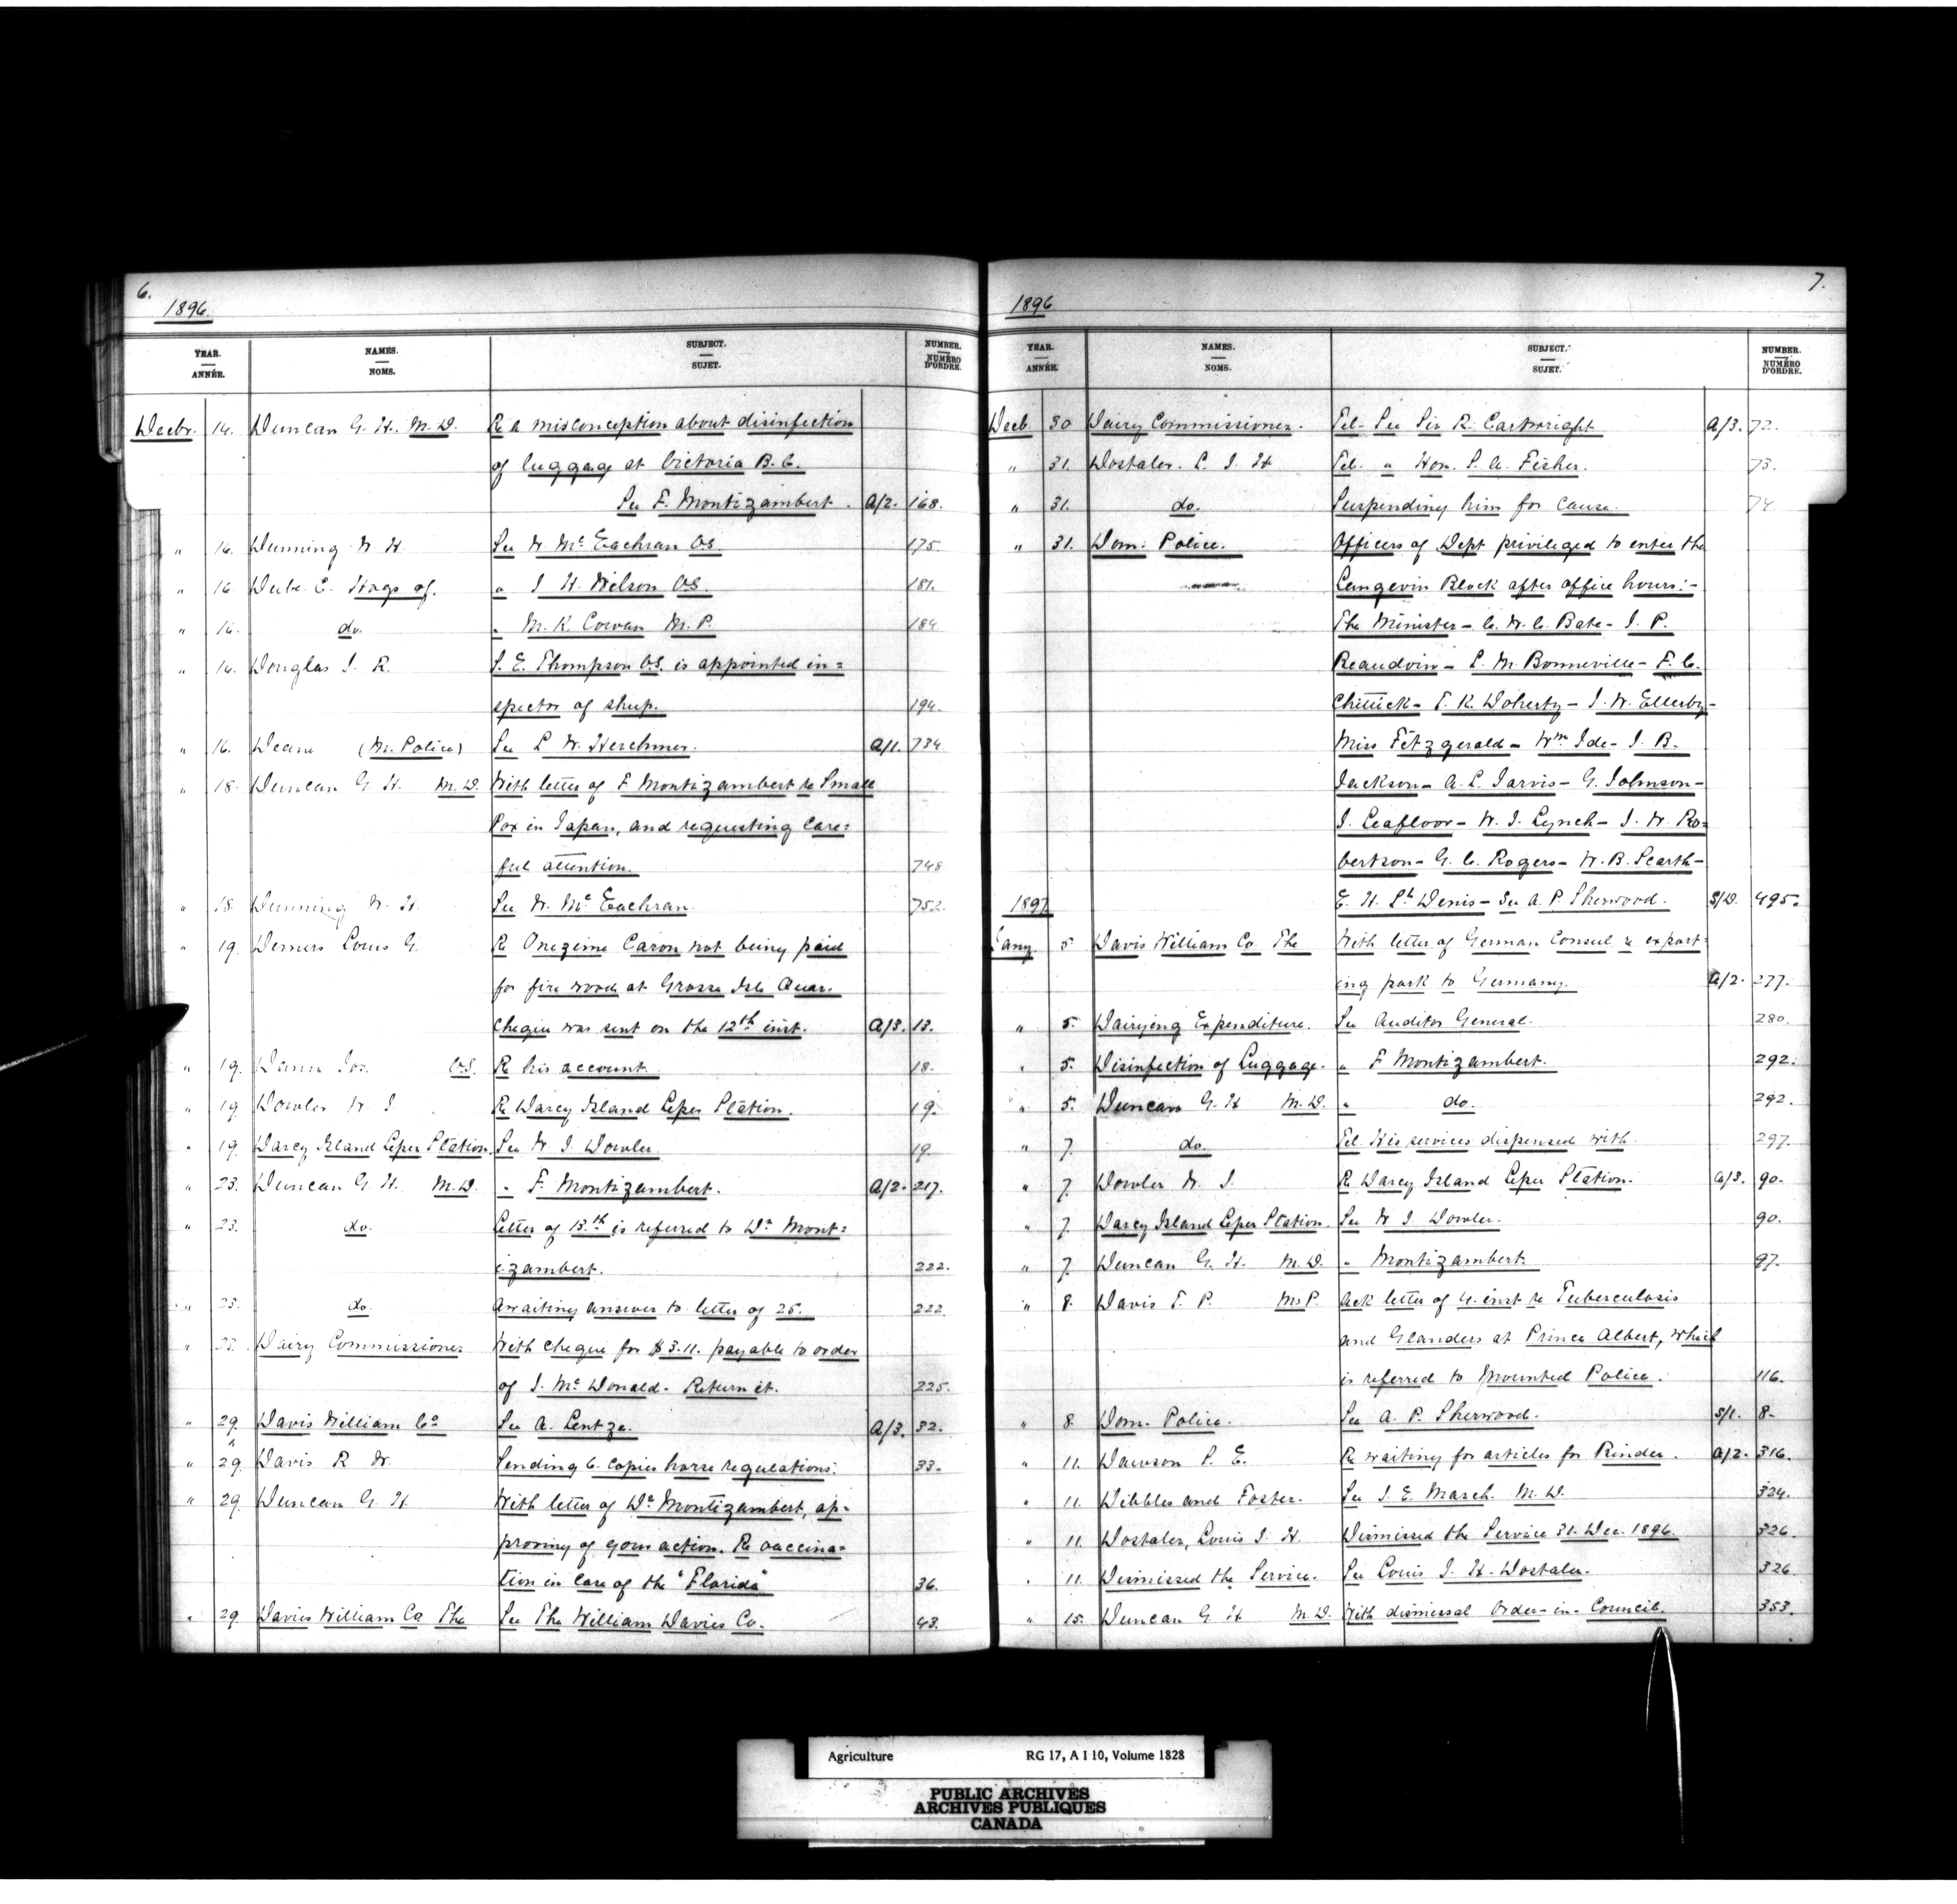 6.
1896.
YEAR. NAMES. SUBJECT. NUMBER.
ANNÉE. NOMS. SUJET. NUMÉRO D'ORDRE.
Decbr. 14. Duncan G. H. M.D. Re a misconception about disinfection
of luggage at Victoria B.C.
See F. Montizambert. A/2. 168.
" 16. Dunning W H. See D McEachran VS. 175
" 16 Dube E. Hogs of. " J. H. Wilson V.S. 181.
" 16. do. " M. K. Cowan M.P. 184
" 16. Douglas J. R. S. E. Thompson V.S. is appointed in=
spector of sheep. 194.
" 16. Deane (M. Police) See L W. Herchmer. A/1. 734
" 18. Duncan G H. M.D. With letter of F Montizambert re Small
Pox in Japan, and requesting care=
ful attention. 748
" 18. Dunning W. H. See D. McEachran. 752.
" 19. Demers Louis G. Re Onezime Caron not being paid
for fire wood at Grosse Isle Quar.
Cheque was sent on the 12th inst. A/3. 13.
" 19. Dann Jos. V.S. Re his account. 18.
" 19 Dowler W J. Re Darcy Island Leper Station. 19.
" 19. Darcy Island Leper Station. See W. J. Dowler. 19.
" 23. Duncan G. H. M.D. " F. Montizambert. A/2. 217.
" 23. do. Letter of 15.th is referred to Dr. Mont=
izambert. 222.
" 23. do. Awaiting answer to letter of 25. 222
" 23. Dairy Commissioner With cheque for $3.11. payable to order
of J. McDonald. Return it. 225.
" 29. Davis William Co See A. Lentze. A/3. 32.
" 29. Davis R W. Sending 6. copies horse regulations. 33.
" 29. Duncan G. H. With letter of Dr. Montizambert, ap=
proving of your action. Re vaccina=
tion in case of the "Florida" 36.
" 29 Davies William Co The See The William Davies Co. 43.
7.
1896
YEAR. NAMES. SUBJECT. NUMBER.
ANNÉE. NOMS. SUJET. NUMÉRO D'ORDRE.
Decb. 30 Dairy Commissioner. Tel- See Sir R. Cartwright A/3. 72.
" 31. Dostaler. L. J. H Tel. " Hon. S. A. Fisher. 73.
" 31. do. Suspending him for cause. 74
" 31. Dom. Police. Officers of Dept privileged to enter the
Langevin Block after office hours:-
The Minister - C. W. C. Bate - J. P.
Beaudoin - L. M. Bonneville - F. C.
Chittick - T. K. Doherty - J. W. Ellerby -
Miss Fitzgerald - Wm Ide - J. B.
Jackson - A. L. Jarvis - G. Johnson -
J. Leafloor - W. J. Lynch - J. W. Ro=
bertson - G. C. Rogers - W. B. Scarth -
1897 E. H. St. Denis - See A. P. Sherwood. S/D. 495.
Jany. 5 Davis William Co The With letter of German Consul re export=
ing pork to Germany. A/2. 277.
" 5. Dairying Expenditure. See Auditor General. 280.
" 5. Disinfection of Luggage. " F Montizambert. 292.
" 5. Duncan G. H M.D. " do. 292.
" 7. do. Tel. His services dispensed with. 297.
" 7. Dowler W. J. Re Darcy Island Leper Station. A/3. 90.
" 7. Darcy Island Leper Station. See W J. Dowler. 90.
" 7. Duncan G. H. M.D. " Montizambert. 97.
" 8. Davis T. P. M.P. Ack letter of 4. inst re Tuberculosis
and Glanders at Prince Albert, which
is referred to Mounted Police. 116.
" 8. Dom. Police. See A. P. Sherwood. S/1. 8.
" 11. Dawson S. E. Re waiting for articles for Binder. A/2. 316.
" 11. Dibbles and Foster. See J. E. March. M.D. 324.
" 11. Dostaler, Louis J. H. Dismissed the Service 31. Dec. 1896. 326.
" 11. Dismissed the Service. See Louis J. H. Dostaler. 326
" 15. Duncan G. H M.D. With dismissal Order-in-Council. 353.
Agriculture RG 17, A I 10, Volume 1828
PUBLIC ARCHIVES
ARCHIVES PUBLIQUES
CANADA